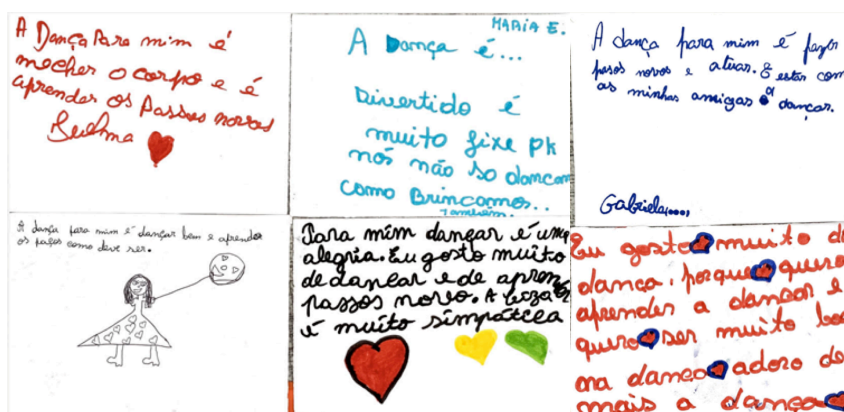 A Dança Para mim é
mecher o corpo e é
aprender os Passos novos
MARIA E.
A Dança é...
Divertido é
muito fixe pk
nós não so dancam
como Brincamos..
também.
A dança para mim é fazer
pasos novos e atuar. E estar com
as minhas amigas a dançar.
Gabriela....
A dança para mim é dançar bem e aprender
os paços como deve ser.
Para mim dançar é uma
alegria. Eu gosto muito
de dancar e de apren
passos novo. A
é muito simpátcea
Eu gosto muito d
danca. porque quero
aprender a dancar e
quero ser muito boa
na danca adoro de
mais a danca